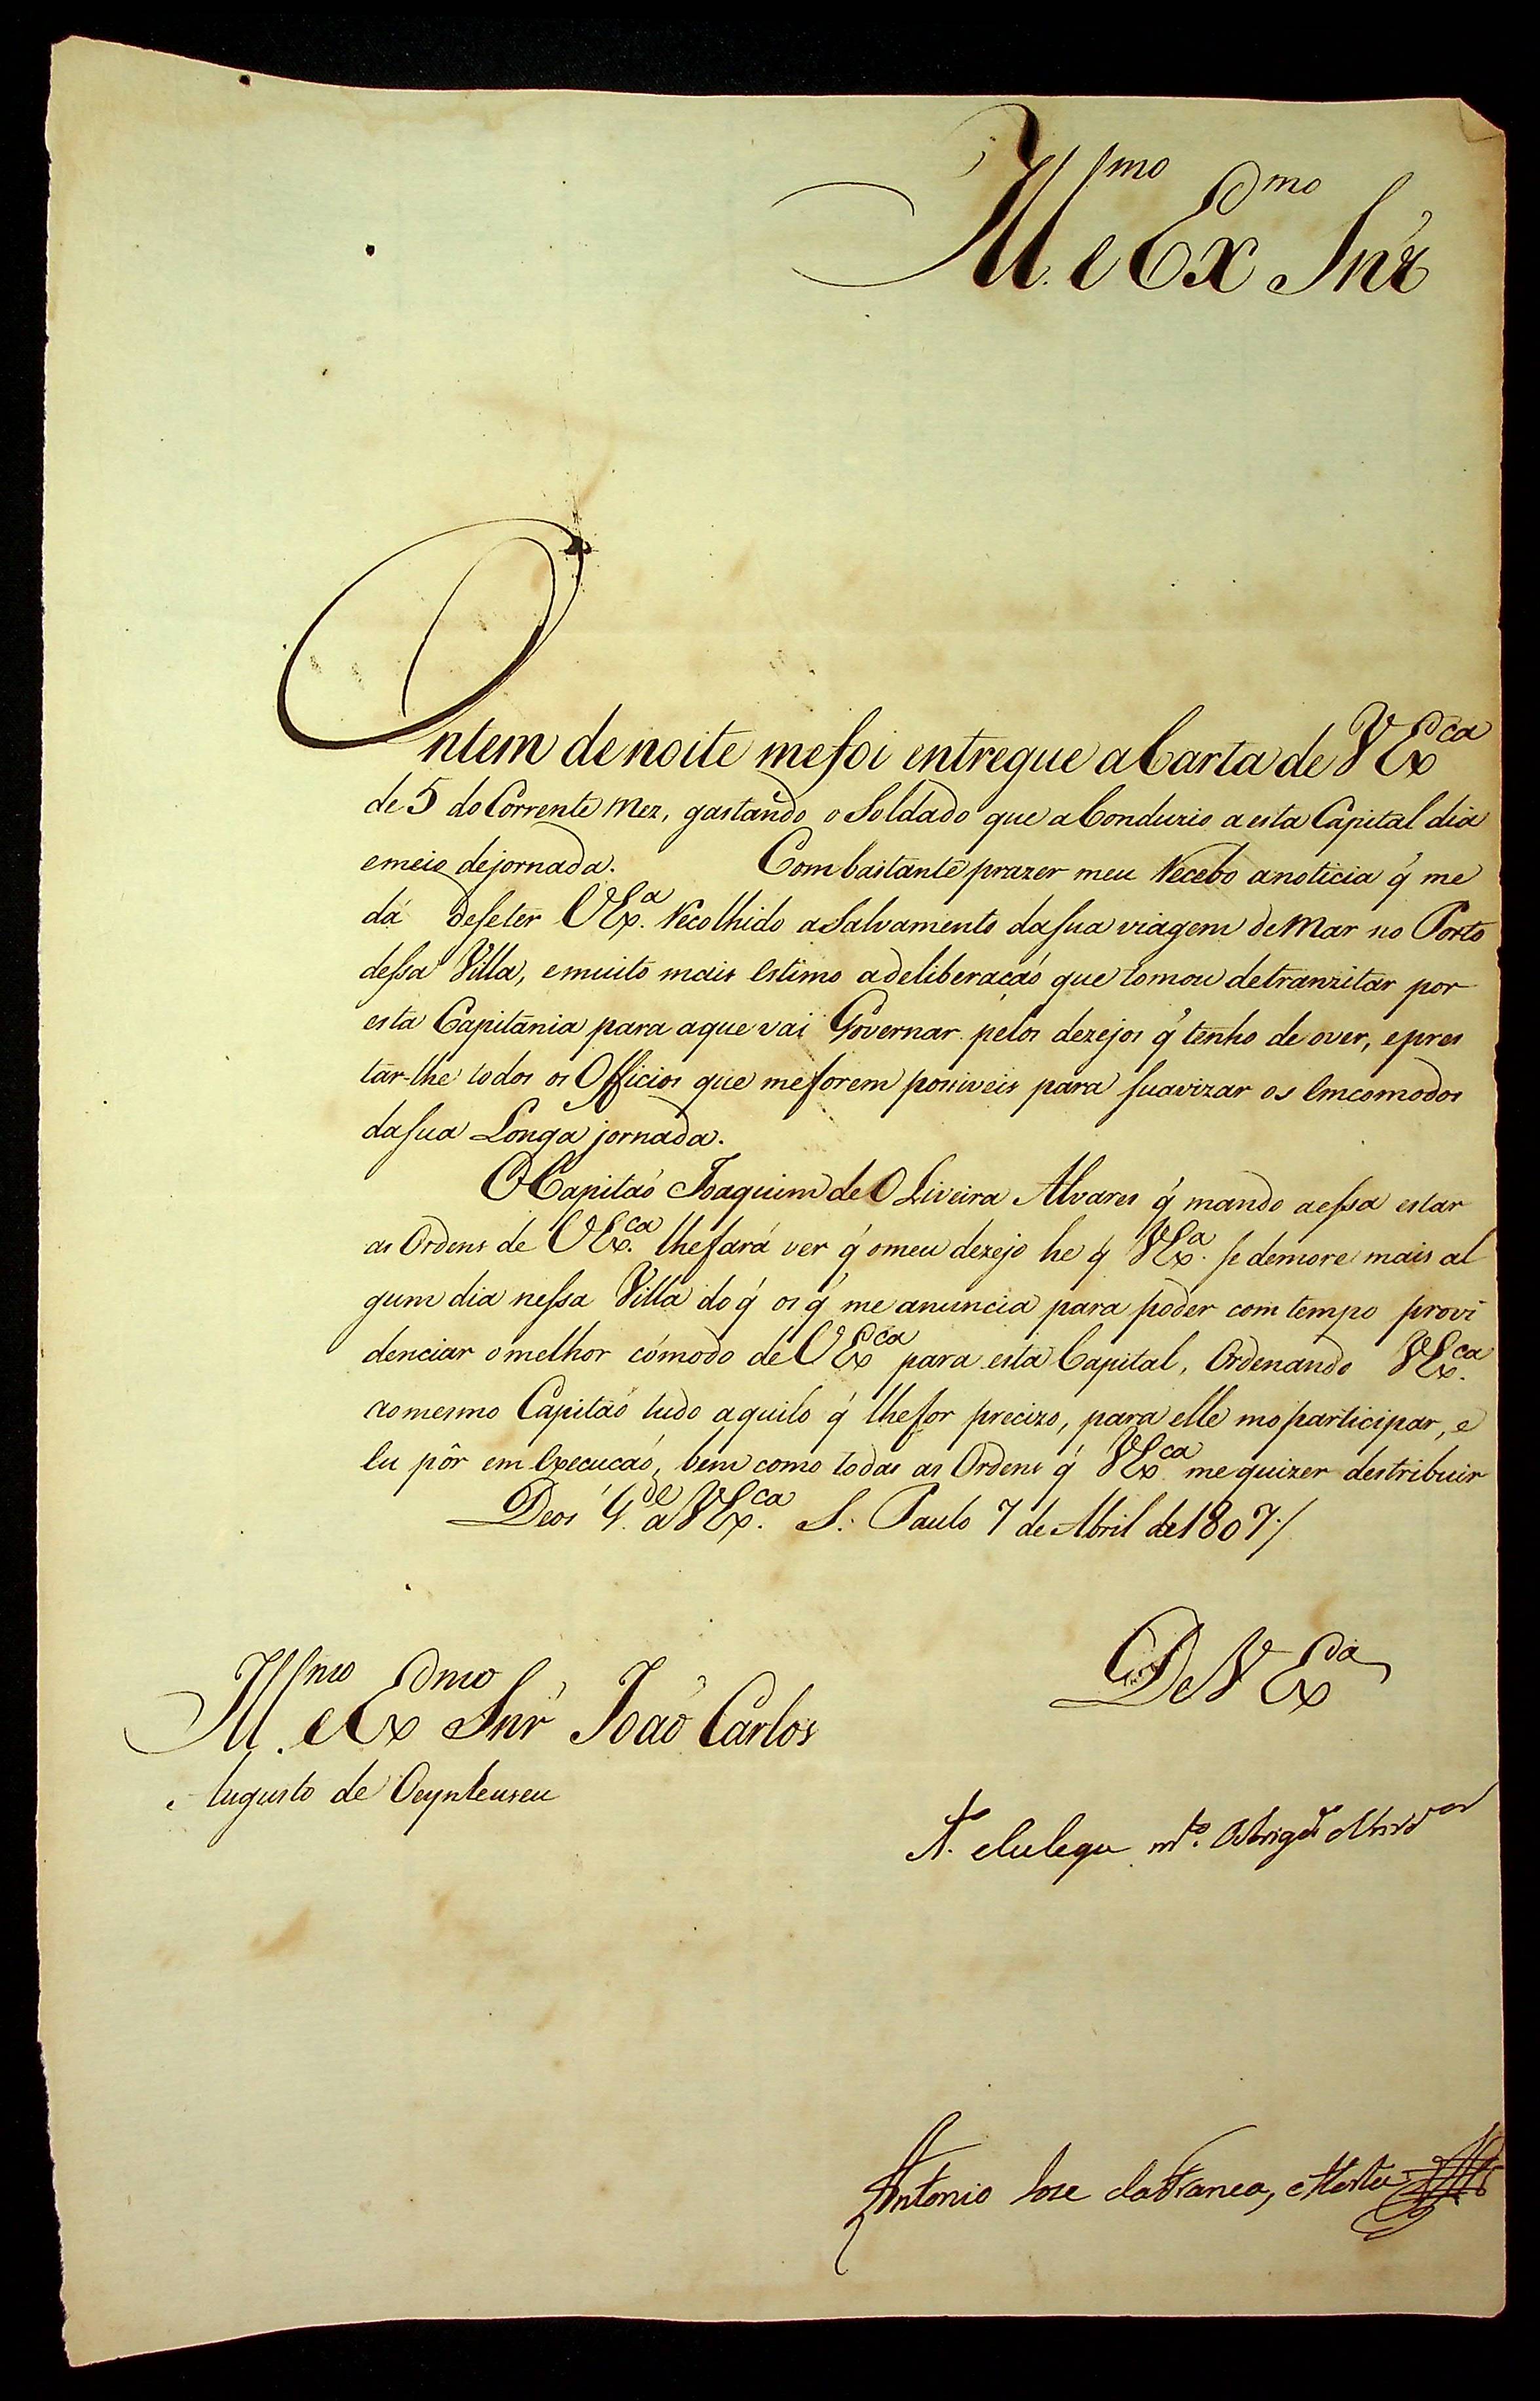 Ill.mo e Ex.mo Snr
Ontem de noite me foi entregue a Carta de V Ex.ca
de 5 do Corrente Mez, gastando o Soldado que a Conduzio a esta Capital dia
e meio de jornada. Com bastante prazer meu Recebo a noticia q̃ me
dá de se ter V Ex.a Recolhido a Salvamento da sua viagem de Mar no Porto
dessa Villa, e muito mais Estimo a deliberação que tomou de tranzitar por
esta Capitania para a que vai Governar pelos dezejos q̃ tenho de o ver, e pres
tar-lhe todos os Officios que me forem possiveis para suavizar os Emcomodos
da sua Longa jornada.
O Capitaõ Joaquim de OLiveira Alvares q̃ mando a essa estar
as Ordens de V Ex.ca lhe fará ver q̃ o meu dezejo he q̃ V Ex.a se demore mais al
gum dia nessa Villa do q̃ os q̃ me anuncia para poder com tempo provi
denciar o melhor cómodo de V Ex.ca para esta Capital, Ordenando V Ex.ca
ao mesmo Capitaõ tudo aquilo q̃ lhe for precizo, para elle mo participar, e
Eu pôr em Execucaõ, bem como todas as Ordens q̃ V Ex.ca me quizer destribuir
Deos G.de a V Ex.ca S. Paulo 7 de Abril de 1807/
De V Ex.a
Ill.mo e Ex.mo Snr Joaõ Carlos
Augusto de Oeynleuseu
m.to Obrig.do
Antonio Jose da Franca, e Horta